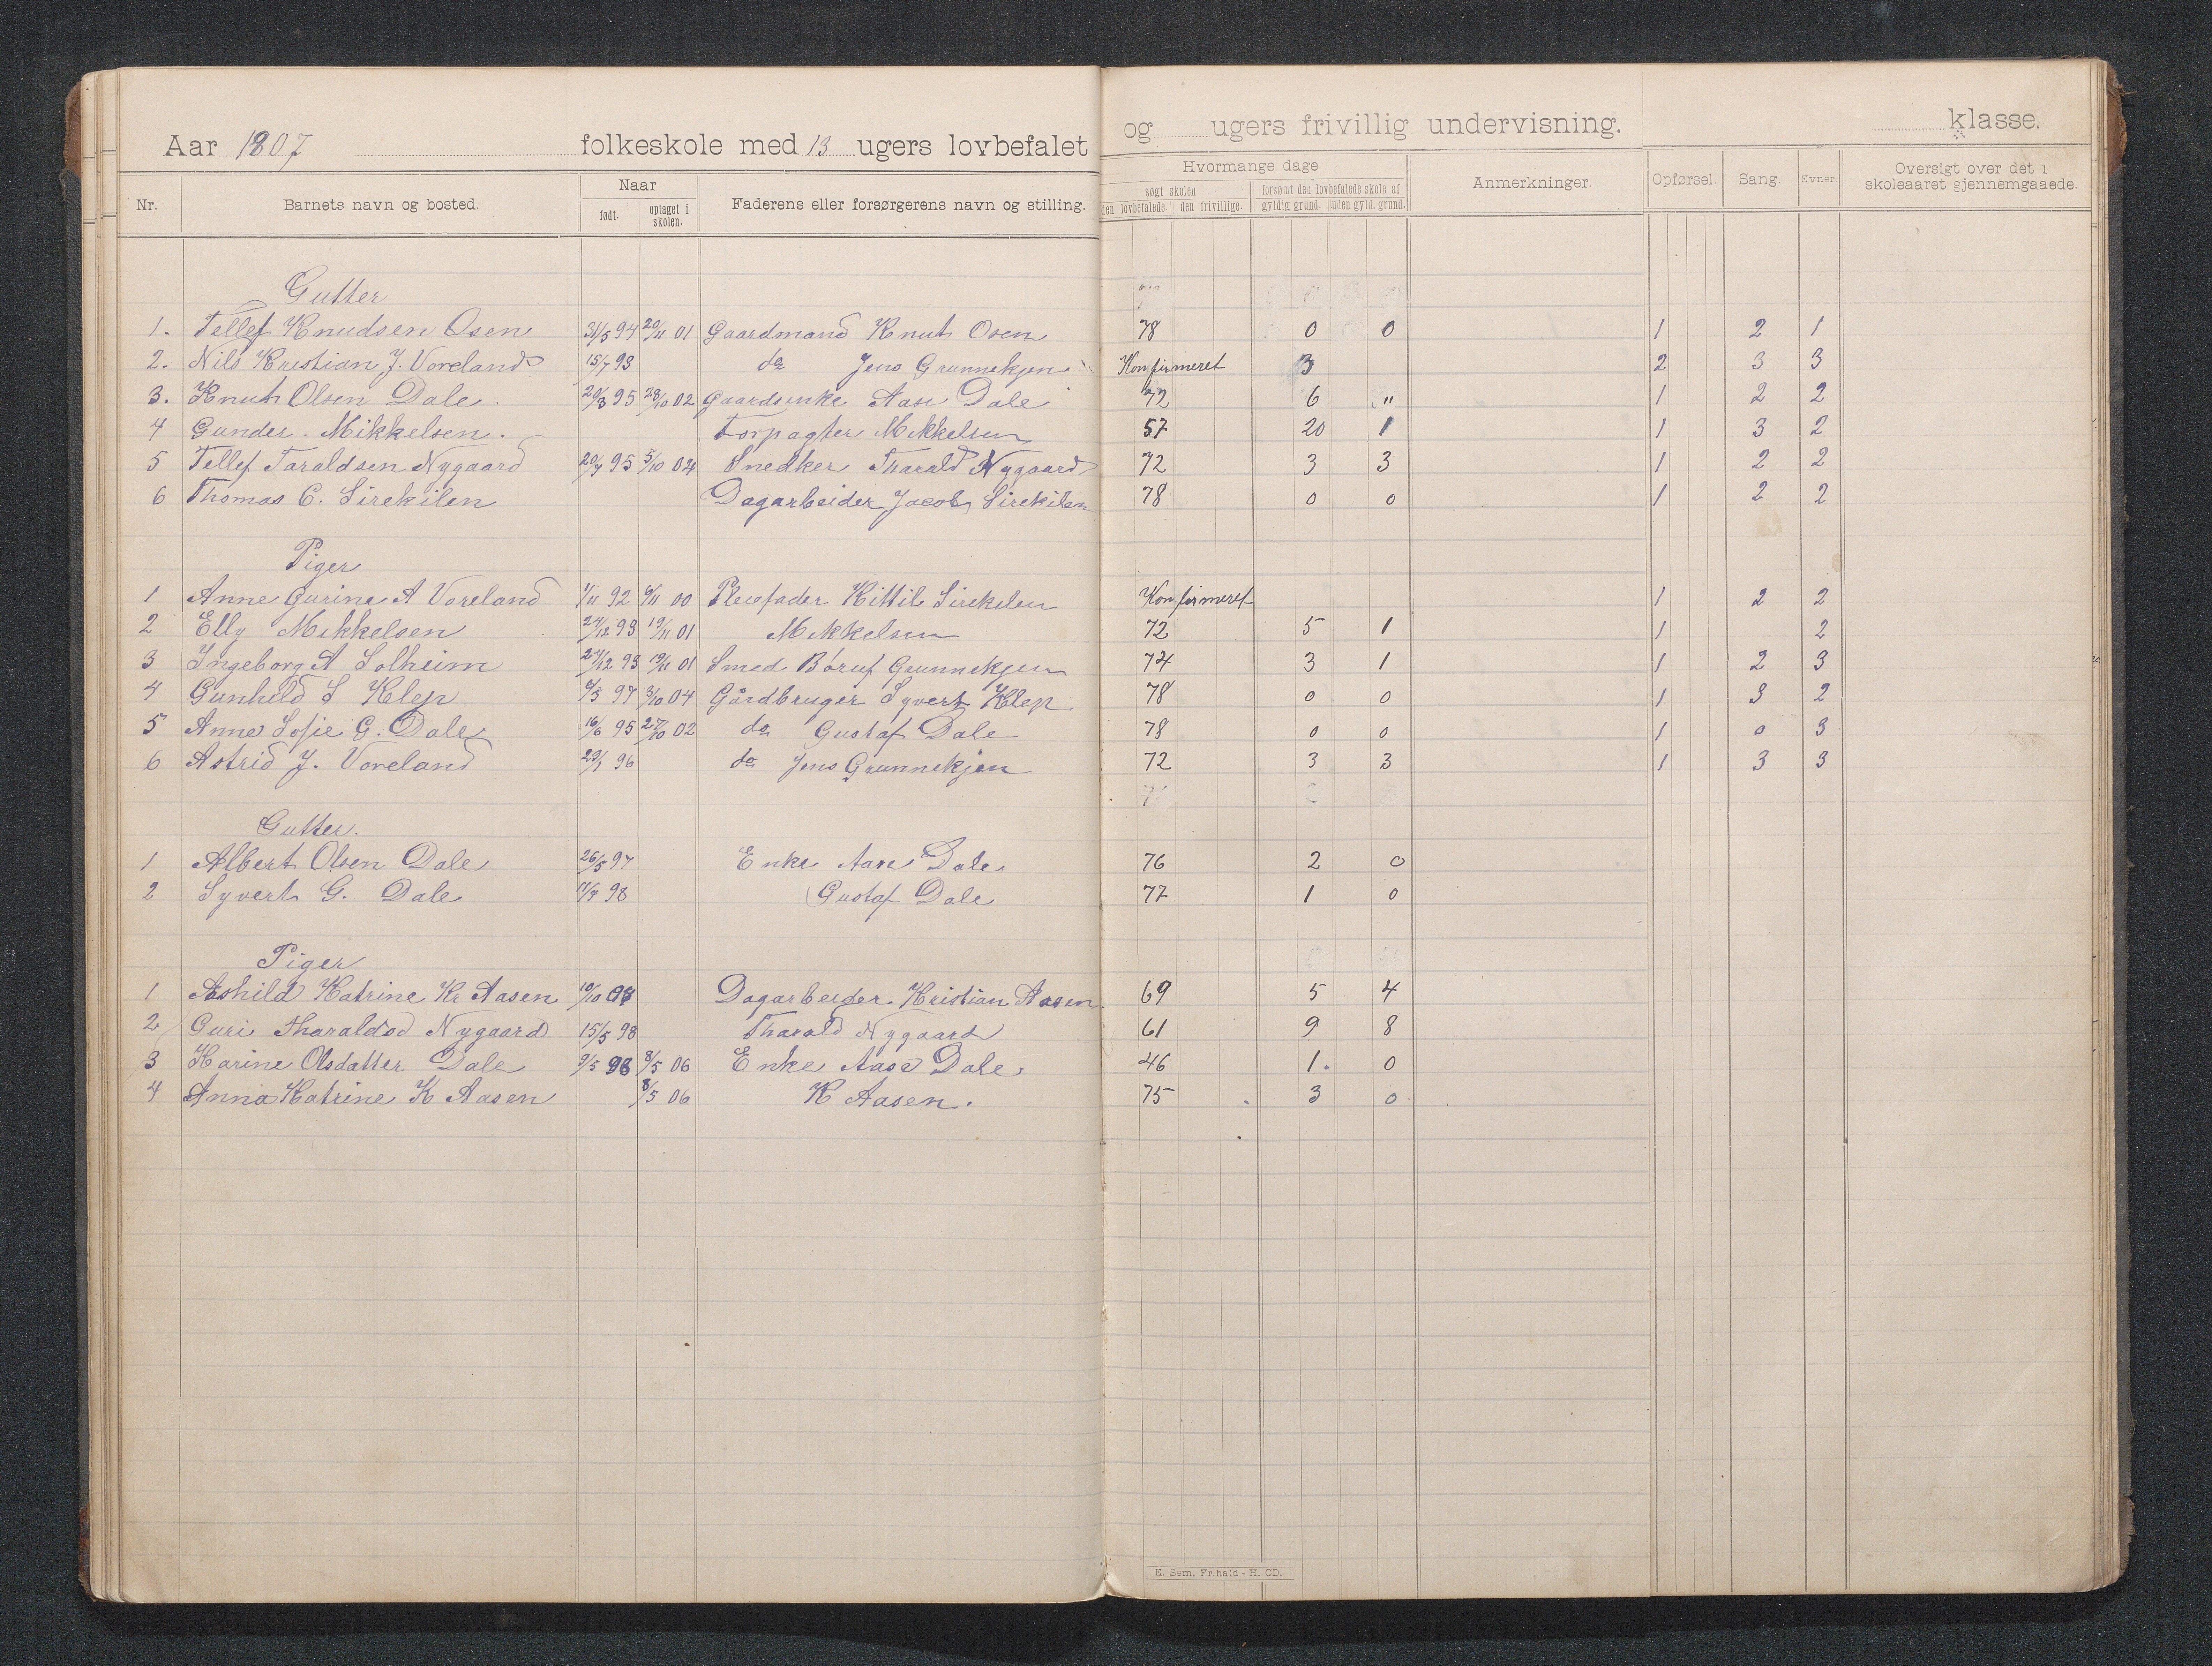 Aar 1807 folkeskole med 13 ugers lovbefalet og ugers frivillig undervisning. klasse.
Nr. Barnets navn og bosted. Naar født. optaget i skolen. Faderens eller forsørgerens navn og stilling. Hvormange dage søgt skolen den lovbefalede den frivillige. forsømt den lovbefalede skole af gyldig grund. uden gyld. grund. Anmerkninger. Opførsel. Sang. Evner Oversigt over det i skoleaaret gjennemgaaede.
Gutter
1. Tellef Knudsen Osen 31/5 94 20/11 01 Gaardmand Knut Osen 78 0 0 1 2 1
2. Nils Kristian J. Voreland 15/7 93 do Jens Grunnekjen Konfirmeret 3 2 3 3
3. Knut Olsen Dale. 20/8 95 28/10 02 Gaardsenke Aase Dale 72 6 " 1 2 2
4 Gunder. Mikkelsen. Forpagter Mikkelsen 57 20 1 1 3 2
5 Tellef Taraldsen Nygaard 20/7 95 5/10 04 Snedker Tharald Nygaard 72 3 3 1 2 2
6 Thomas C. Sirekilen Dagarbeider Jacob Sirekilen 78 0 0 1 2 2
Piger
1 Anne Gurine A Voreland 1/11 92 6/11 00 Pleiefader Kittil Sirekilen Konfirmeret 1 2 2
2 Elly Mikkelsen 24/12 93 19/11 01 Mikkelsen 72 5 1 1 2
3 Ingeborg A Solheim 24/12 93 19/11 01 Smed Børuf Grunnekjen 74 3 1 1 2 3
4 Gunhild S Klep 9/5 97 3/10 04 Gårdbruger Syvert Klep. 78 0 0 1 3 2
5 Anne Sofie G. Dale 16/6 95 27/10 02 do Gustaf Dale 78 0 0 1 0 3
6 Astrid J. Voreland 29/1 96 do Jens Grunnekjen 72 3 3 1 3 3
Gutter.
1 Albert Olsen Dale 26/5 97 Enke Aase Dale. 76 2 0
2 Syvert G. Dale 11/7 98 Gustaf Dale 77 1 0
Piger
1 Ashild Katrine Kr Aasen 10/10 98 Dagarbeider Kristian Aasen. 69 5 4
2 Guri Tharaldsd Nygaard 15/5 98 Tharald Nygaard 61 9 8
3 Karine Olsdatter Dale 9/5 98 8/5 06 Enke Aase Dale. 46 1. 0
4 Anna Katrine K Aasen 8/5 06 K Aasen. 75 3 0
E. Sem. Fr.hald - H. CD.